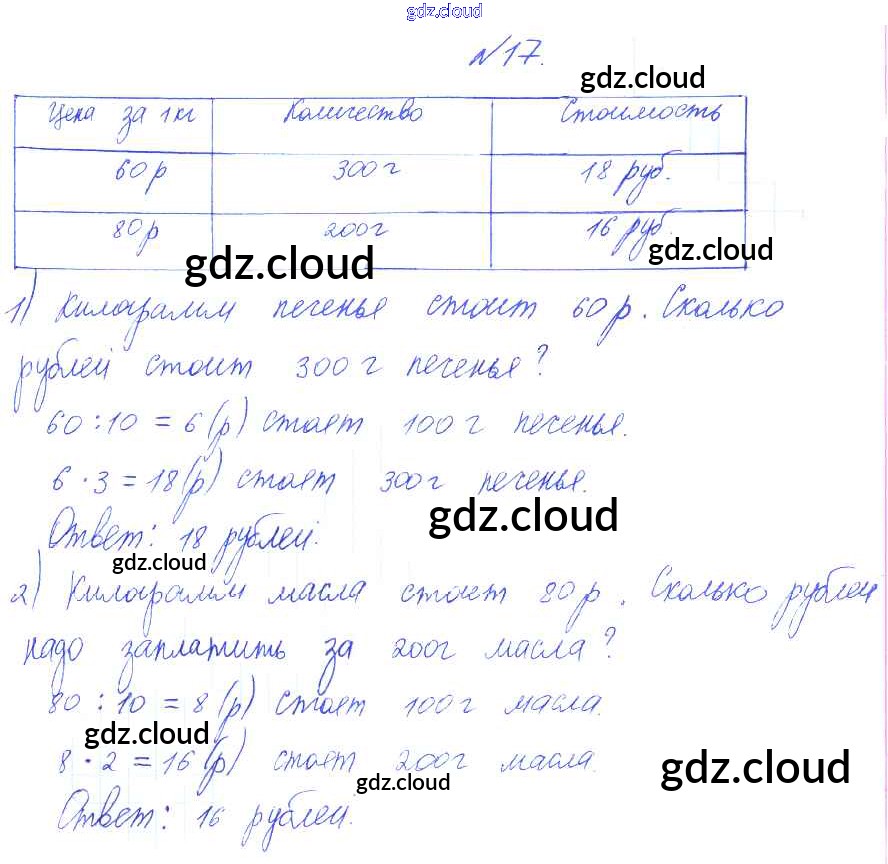 gdz.cloud
№17.
gdz.cloud
Цена за 1кг Количество Стоимость
60р 300г 18 руб.
80р 200г 16 руб.
gdz.cloud gdz.cloud
1) Килограмм печенья стоит 60 р. Сколько
рублей стоит 300 г печенья?
60 : 10 = 6 (р) стоят 100 г печенья.
6 · 3 = 18 (р) стоят 300г печенья.
gdz.cloud
Ответ: 18 рублей.
gdz.cloud
2) Килограмм масла стоит 80 р. Сколько рублей
надо заплатить за 200г масла?
80 : 10 = 8 (р) стоят 100 г масла.
gdz.cloud
8 · 2 = 16 (р) стоят 200г масла.
gdz.cloud gdz.cloud
Ответ: 16 рублей.